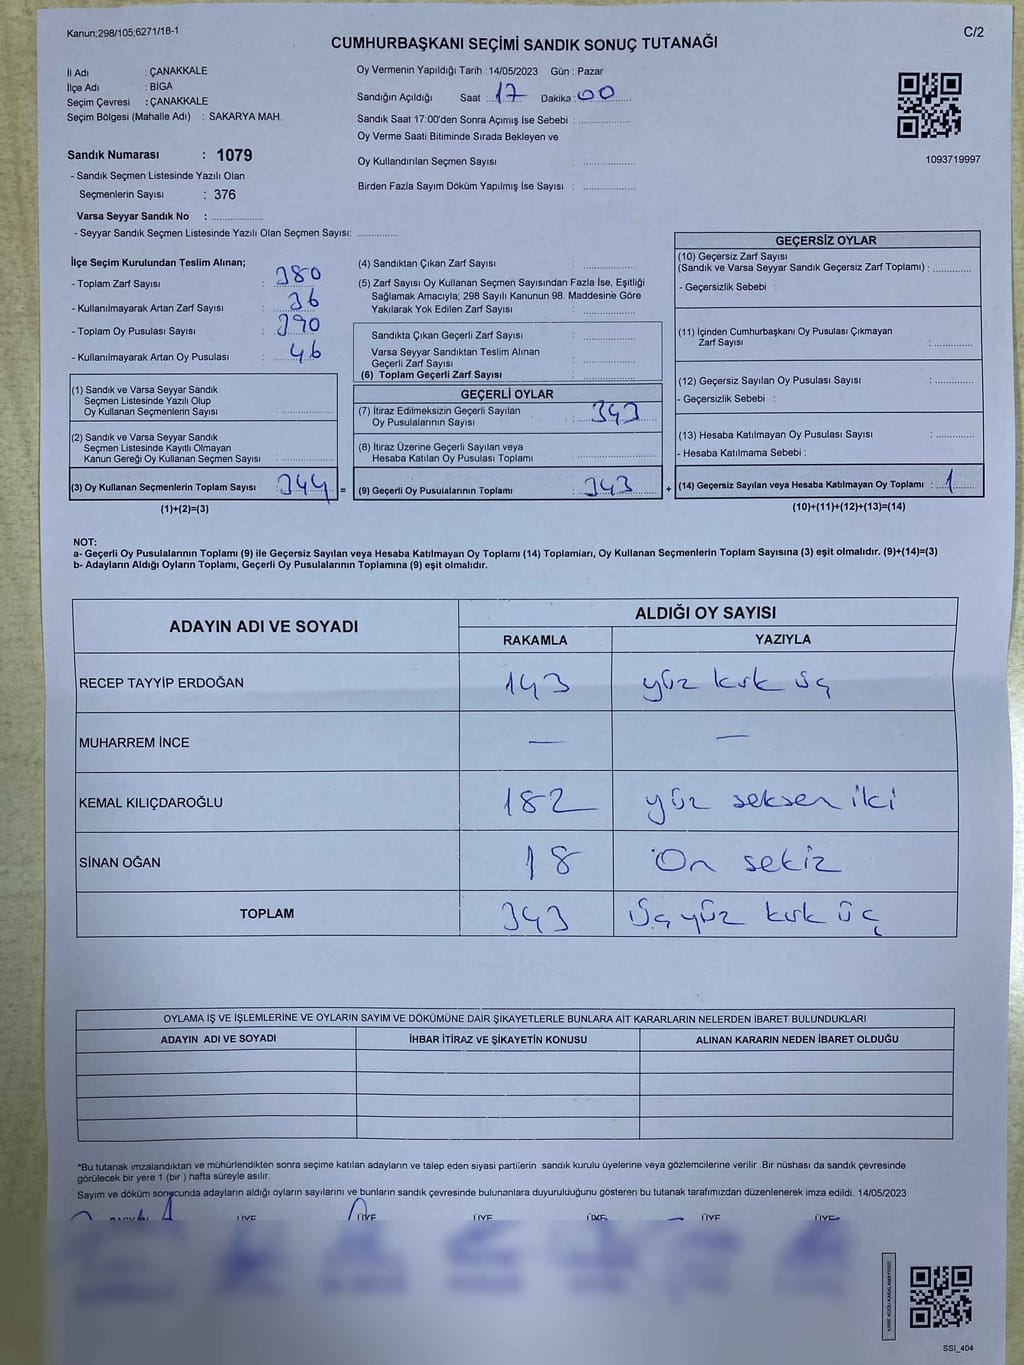 Kanun;298/105;6271/18-1
C/2
CUMHURBAŞKANI SEÇİMİ SANDIK SONUÇ TUTANAĞI
İl Adı : ÇANAKKALE
İlçe Adı : BİGA
Seçim Çevresi : ÇANAKKALE
Seçim Bölgesi (Mahalle Adı) : SAKARYA MAH.
Sandık Numarası : 1079
- Sandık Seçmen Listesinde Yazılı Olan
Seçmenlerin Sayısı : 376
Varsa Seyyar Sandık No : ..................
- Seyyar Sandık Seçmen Listesinde Yazılı Olan Seçmen Sayısı: ..............
Oy Vermenin Yapıldığı Tarih :14/05/2023 Gün : Pazar
Sandığın Açıldığı Saat : 17 Dakika : 00
Sandık Saat 17:00'den Sonra Açımış İse Sebebi : ..................
Oy Verme Saati Bitiminde Sırada Bekleyen ve
Oy Kullandırılan Seçmen Sayısı : ..................
Birden Fazla Sayım Döküm Yapılmış İse Sayısı : ..................
1093719997
İlçe Seçim Kurulundan Teslim Alınan;
- Toplam Zarf Sayısı : 380
- Kullanılmayarak Artan Zarf Sayısı : 36
- Toplam Oy Pusulası Sayısı : 390
- Kullanılmayarak Artan Oy Pusulası : 46
(1) Sandık ve Varsa Seyyar Sandık
Seçmen Listesinde Yazılı Olup
Oy Kullanan Seçmenlerin Sayısı : ..................
(2) Sandık ve Varsa Seyyar Sandık
Seçmen Listesinde Kayıtlı Olmayan
Kanun Gereği Oy Kullanan Seçmen Sayısı : ..................
(3) Oy Kullanan Seçmenlerin Toplam Sayısı : 344 =
(1)+(2)=(3)
(4) Sandıktan Çıkan Zarf Sayısı : ..................
(5) Zarf Sayısı Oy Kullanan Seçmen Sayısından Fazla İse, Eşitliği
Sağlamak Amacıyla; 298 Sayılı Kanunun 98. Maddesine Göre
Yakılarak Yok Edilen Zarf Sayısı : ..................
Sandıkta Çıkan Geçerli Zarf Sayısı : ..................
Varsa Seyyar Sandıktan Teslim Alınan
Geçerli Zarf Sayısı : ..................
(6) Toplam Geçerli Zarf Sayısı : ..................
GEÇERLİ OYLAR
(7) İtiraz Edilmeksizin Geçerli Sayılan
Oy Pusulalarının Sayısı : 343
(8) İtiraz Üzerine Geçerli Sayılan veya
Hesaba Katılan Oy Pusulası Toplamı : ..................
(9) Geçerli Oy Pusulalarının Toplamı : 343 +
GEÇERSİZ OYLAR
(10) Geçersiz Zarf Sayısı
(Sandık ve Varsa Seyyar Sandık Geçersiz Zarf Toplamı) : ..............
- Geçersizlik Sebebi :
(11) İçinden Cumhurbaşkanı Oy Pusulası Çıkmayan
Zarf Sayısı : ..............
(12) Geçersiz Sayılan Oy Pusulası Sayısı : ..............
- Geçersizlik Sebebi :
(13) Hesaba Katılmayan Oy Pusulası Sayısı : ..............
- Hesaba Katılmama Sebebi :
(14) Geçersiz Sayılan veya Hesaba Katılmayan Oy Toplamı : 1
(10)+(11)+(12)+(13)=(14)
NOT:
a- Geçerli Oy Pusulalarının Toplamı (9) ile Geçersiz Sayılan veya Hesaba Katılmayan Oy Toplamı (14) Toplamları, Oy Kullanan Seçmenlerin Toplam Sayısına (3) eşit olmalıdır. (9)+(14)=(3)
b- Adayların Aldığı Oyların Toplamı, Geçerli Oy Pusulalarının Toplamına (9) eşit olmalıdır.
ADAYIN ADI VE SOYADI
ALDIĞI OY SAYISI
RAKAMLA YAZIYLA
RECEP TAYYİP ERDOĞAN 143 yüz kırk üç
MUHARREM İNCE — —
KEMAL KILIÇDAROĞLU 182 yüz seksen iki
SİNAN OĞAN 18 On sekiz
TOPLAM 343 Üç yüz kırk üç
OYLAMA İŞ VE İŞLEMLERİNE VE OYLARIN SAYIM VE DÖKÜMÜNE DAİR ŞİKAYETLERLE BUNLARA AİT KARARLARIN NELERDEN İBARET BULUNDUKLARI
ADAYIN ADI VE SOYADI İHBAR İTİRAZ VE ŞİKAYETİN KONUSU ALINAN KARARIN NEDEN İBARET OLDUĞU
*Bu tutanak imzalandıktan ve mühürlendikten sonra seçime katılan adayların ve talep eden siyasi partilerin sandık kurulu üyelerine veya gözlemcilerine verilir .Bir nüshası da sandık çevresinde
görülecek bir yere 1 (bir ) hafta süreyle asılır.
Sayım ve döküm sonucunda adayların aldığı oyların sayılarını ve bunların sandık çevresinde bulunanlara duyurulduğunu gösteren bu tutanak tarafımızdan düzenlenerek imza edildi. 14/05/2023
ÜYE ÜYE ÜYE ÜYE ÜYE ÜYE
SSI_404